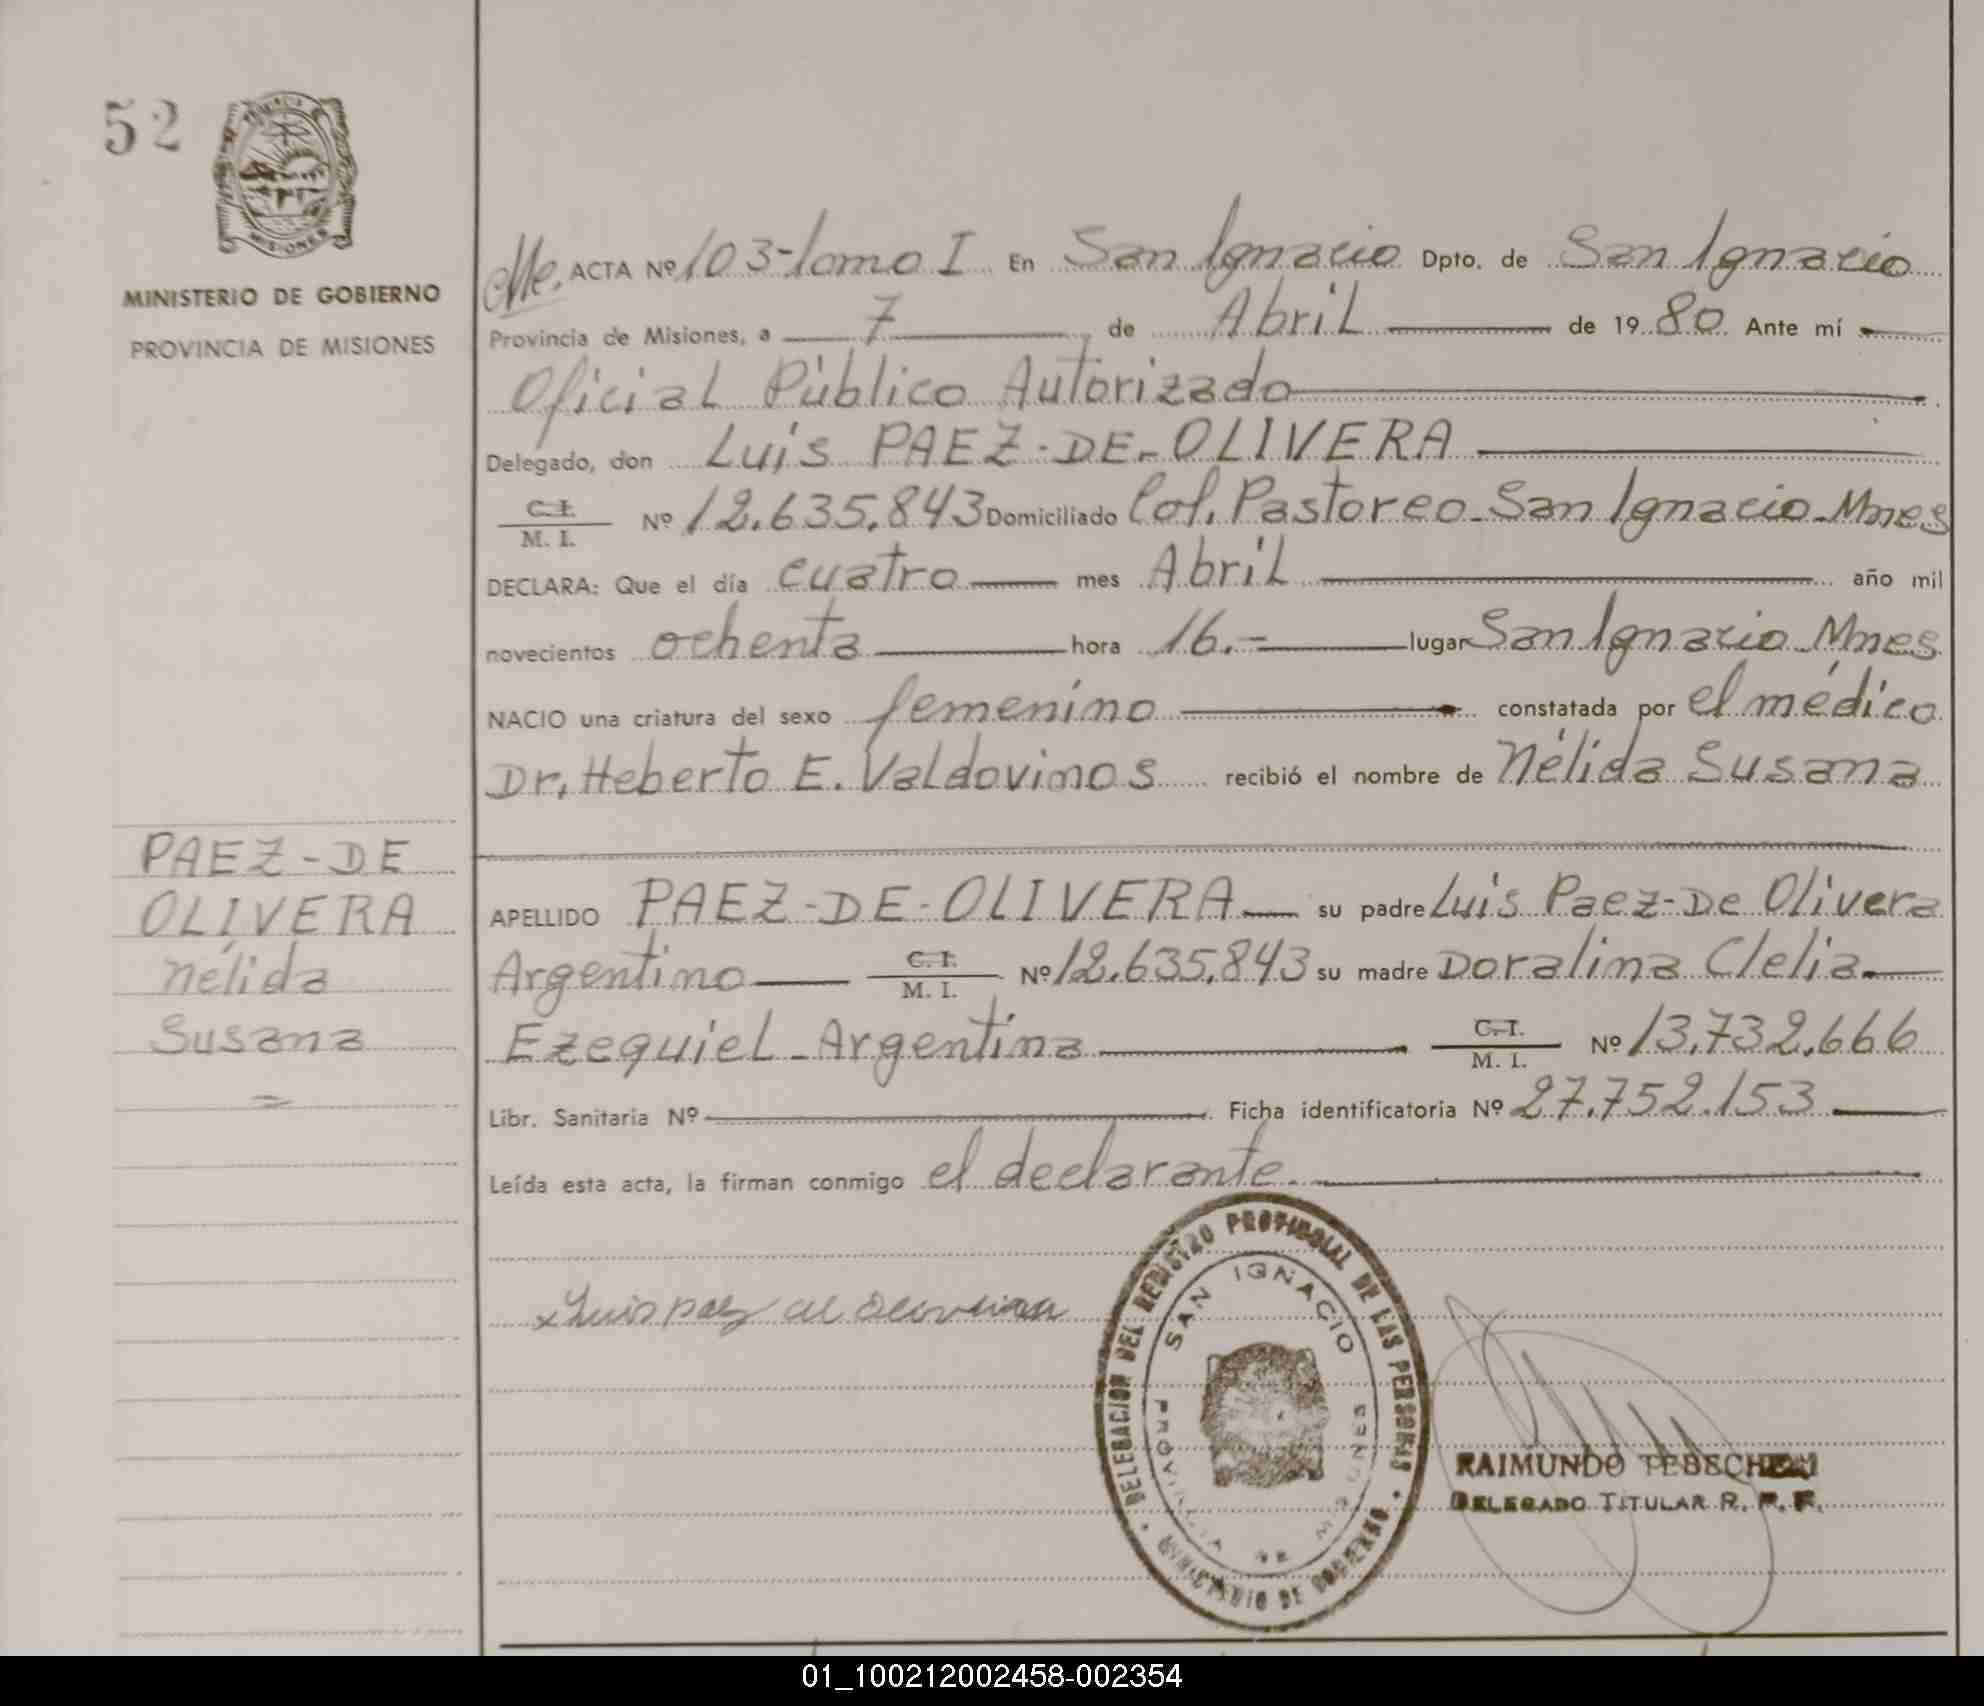 52
MISIONES
MINISTERIO DE GOBIERNO
PROVINCIA DE MISIONES
ACTA Nº 103-tomo I En San Ignacio Dpto. de San Ignacio
Provincia de Misiones, a 7 de Abril de 1980. Ante mí
Oficial Público Autorizado
Delegado, don Luis PAEZ-DE-OLIVERA
C. I.
M. I. Nº 12.635.843 Domiciliado Col. Pastoreo-San Ignacio-Mnes
DECLARA: Que el día cuatro mes Abril año mil
novecientos ochenta hora 16.- lugar San Ignacio Mnes
NACIO una criatura del sexo femenino constatada por el médico
Dr. Heberto E. Valdovinos recibió el nombre de Nélida Susana
PAEZ-DE
OLIVERA
Nélida
Susana
APELLIDO PAEZ-DE-OLIVERA su padre Luis Paez-De Olivera
Argentino C. I. M. I. Nº 12.635.843 su madre Doralina Clelia
Ezequiel-Argentina C. I. M. I. Nº 13.732.666
Libr. Sanitaria Nº Ficha identificatoria Nº 27.752.153
Leída esta acta, la firman conmigo el declarante.
Luis paez de olivera
DELEGACION DEL REGISTRO PROVINCIAL DE LAS PERSONAS
MINISTERIO DE GOBIERNO
SAN IGNACIO
PROVINCIA DE MISIONES
RAIMUNDO
DELEGADO TITULAR R. P. P.
01_100212002458-002354